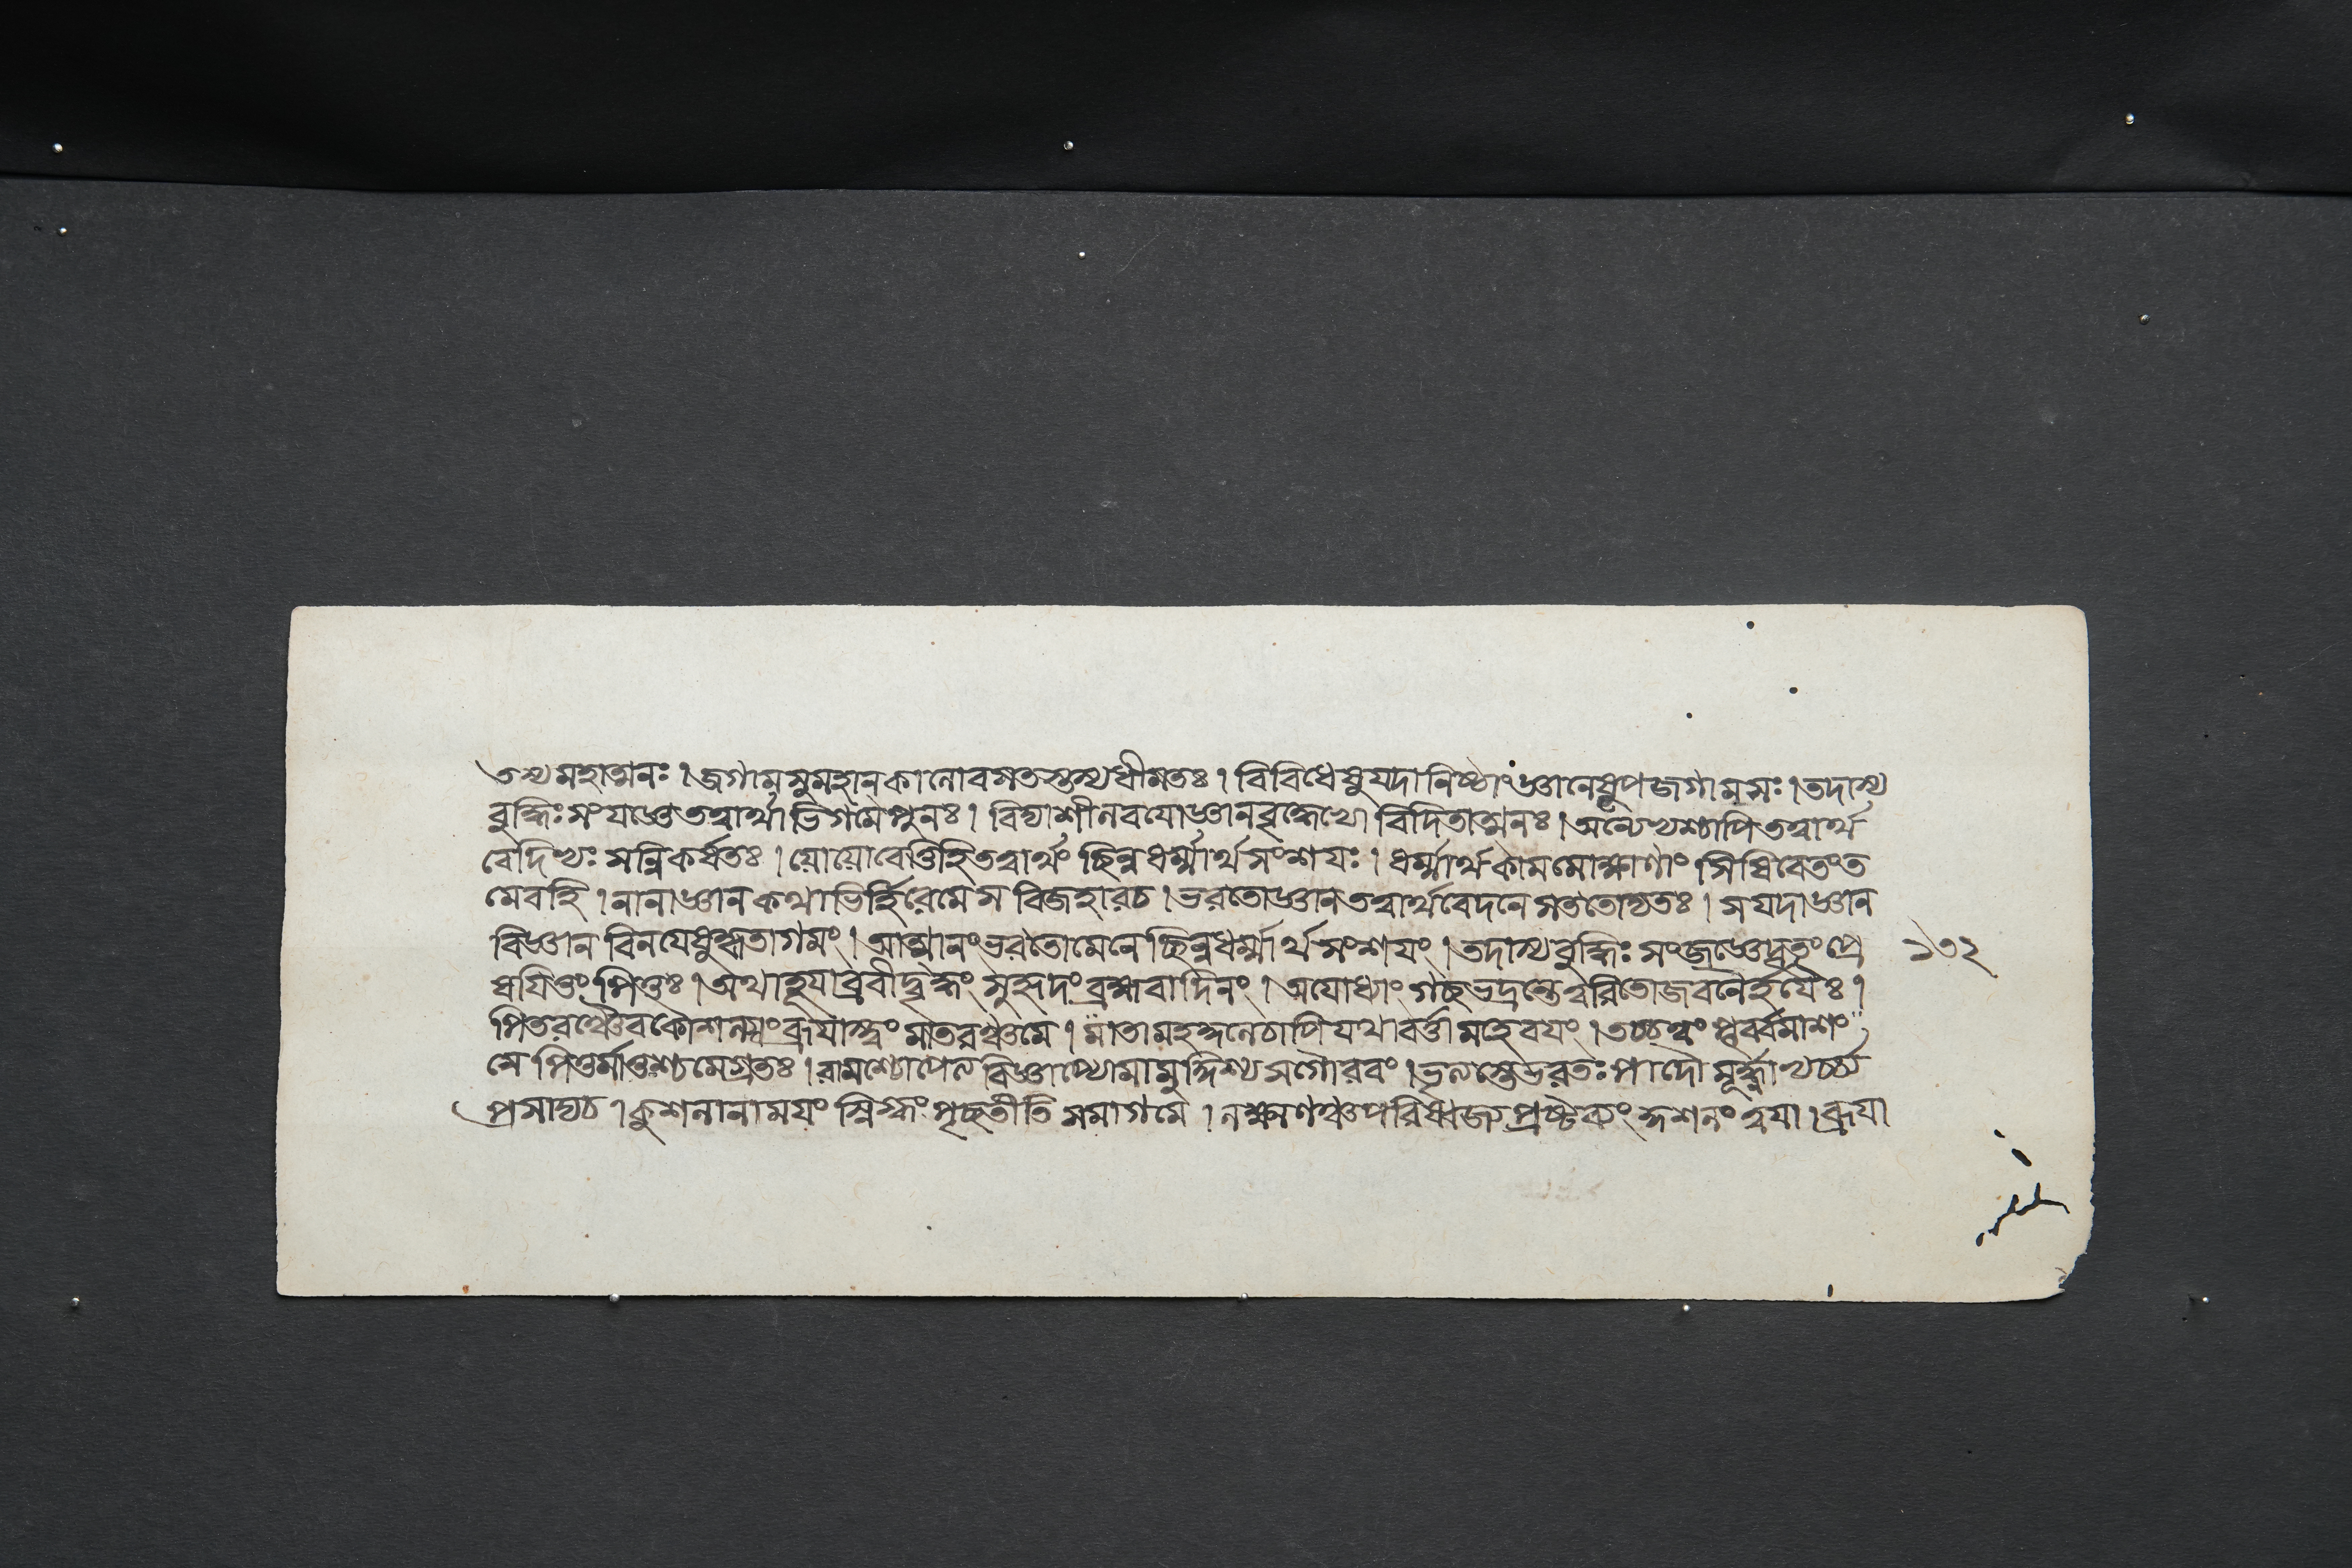 তস্যমহাত্মনঃ।জগামসুমহানকালোবসতস্তস্যধীমতঃ। বিবিধেষুযদানিষ্ঠাংজ্ঞানেষুপজগামসঃ।তদাস্য
বুদ্ধিঃসংযজ্ঞেতত্বার্থাভিগমেপুনঃ। বিদ্যাশীলবযোজ্ঞানবৃদ্ধেভ্যো বিদিতাত্মনঃ।অন্যেভ্যশ্চাপিতত্বার্থ
বেদিভ্যঃ সন্নিকর্ষতঃ।যোযোবেত্তিহিতত্বার্থং ছিন্নধর্ম্মার্থসংশযঃ। ধর্ম্মার্থকামমোক্ষাণাং সিষিবেতংত
মেবহি।নানাজ্ঞানকথাভির্হিরেমেস বিজহারচ।ভরতোজ্ঞানতত্বার্থবেদনেসততোদ্যতঃ। সযদাজ্ঞান
বিজ্ঞান বিনযেষুহৃতাগমং।আত্মানংভরতোমেনেছিন্নধর্ম্মার্থসংশযং।তদাস্যবুদ্ধিঃ সংজজ্ঞেদূতংপ্রে ১৩২
ষযিতুংপিতুঃ।অথাহূযাব্রবীদ্বৃদ্ধং সুহৃদংব্রহ্মবাদিনং। অযোধ্যাং গচ্ছভদ্রন্তেত্বরিতোজবনৈর্হযৈঃ।
পিতরঞ্চৈবকৌশল্যংব্রূযাস্ত্বংমাতরঞ্চমে।মাতামহকুলেচাপিযথাবর্ত্তামহেবযং।তচ্চত্বং
মে পিতুর্মাতুশ্চমেগ্রতঃ।রামশ্চাপেল বিজ্ঞাপ্যোমামুদ্দিশ্যসগৌরবং। ভরতঃপাদৌ মূর্দ্ধ্না
প্রসাদ্যচ।কুশলানামযং স্নিগ্ধংপৃচ্ছতীতি সমাগমে।লক্ষ্মণঞ্চপরিষ্বজ্য কুশলংত্বযা।ব্রূযা